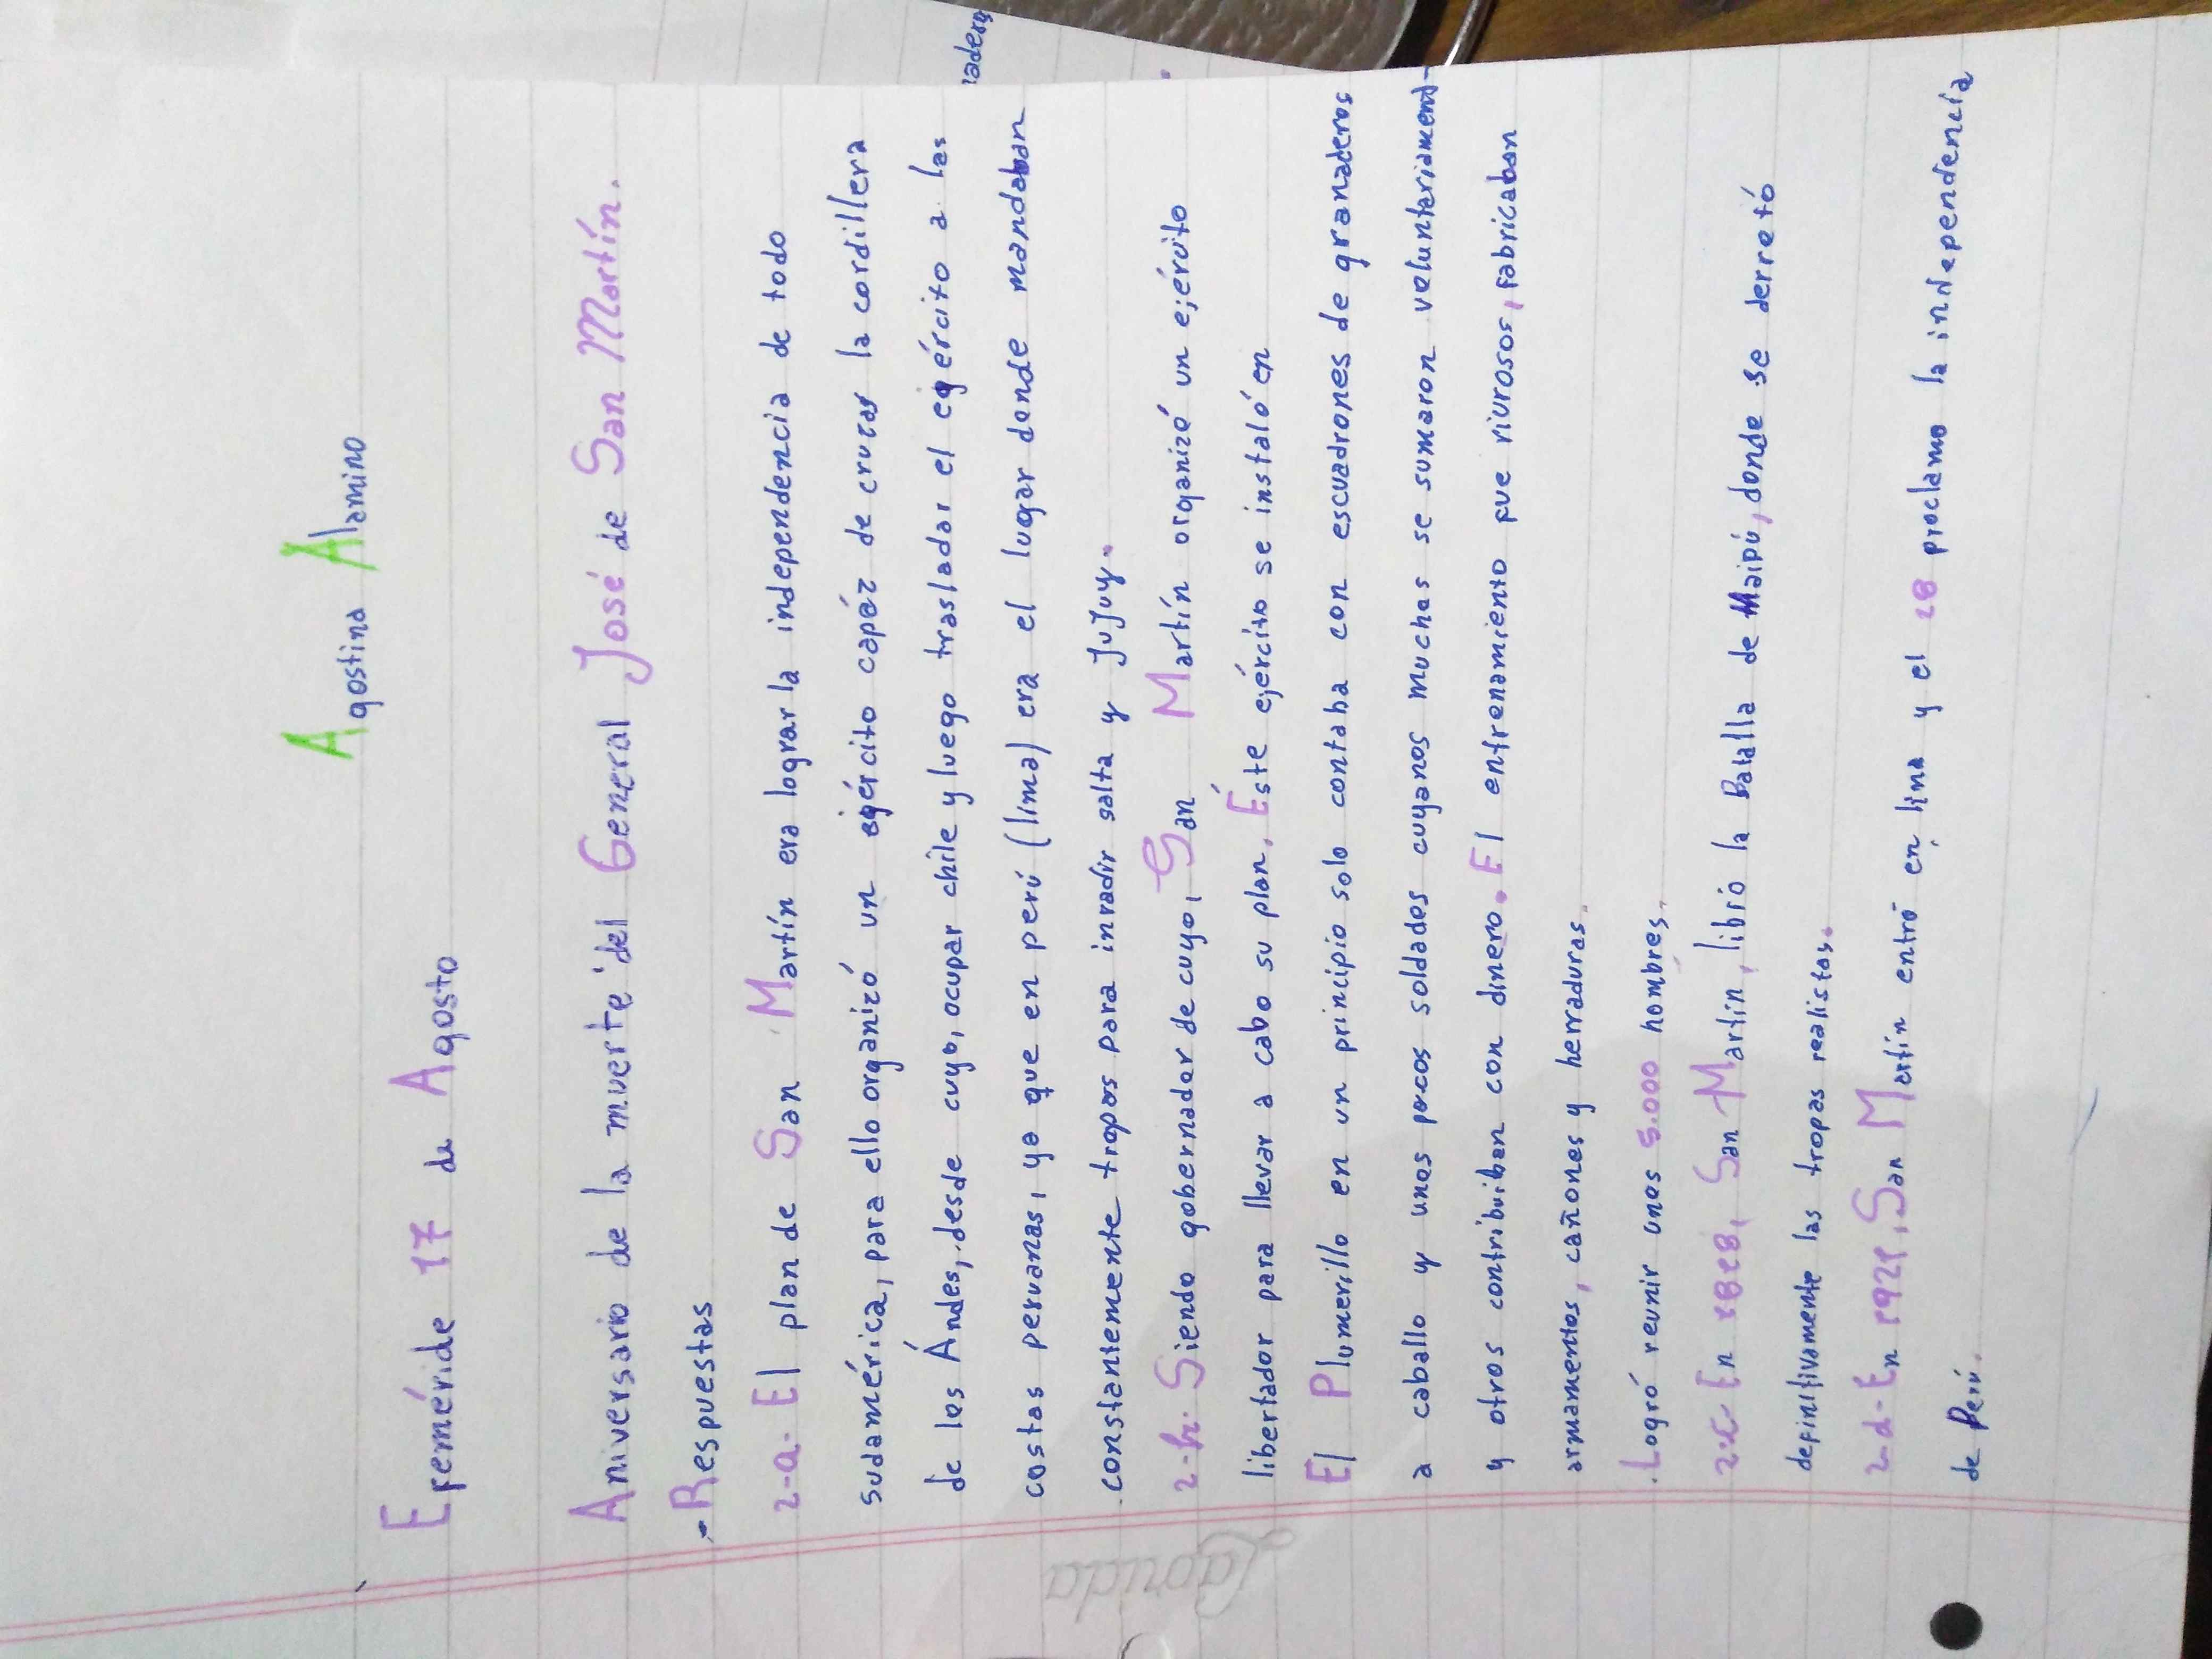 Agostina Alamino
Efeméride 17 de Agosto
Aniversario de la muerte del General José de San Martín.
-Respuestas
2-a- El plan de San Martín era lograr la independencia de todo
sudamérica, para ello organizó un ejército capáz de cruzar la cordillera
de los Ándes, desde cuyo, ocupar chile y luego trasladar el ejército a las
costas peruanas, ya que en perú (lima) era el lugar donde mandaban
constantemente tropas para invadir salta y Jujuy.
2-b- Siendo gobernador de cuyo, San Martín organizó un ejército
libertador para llevar a cabo su plan, Éste ejército se instaló en
El Plumerillo en un principio solo contaba con escuadrones de granaderos
a caballo y unos pocos soldados cuyanos muchos se sumaron voluntariament-
y otros contribuiban con dinero. El entrenamiento fue riurosos, fabricaban
armamentos, cañones y herraduras.
.Logró reunir unos 5.000 hombres.
2-c- En 1818, San Martin, libró la Batalla de Maipú, donde se derrotó
definitivamente las tropas realistas.
2-d- En 1921, San Martín entró en lima y el 28 proclamo la independencia
de Perú.
Laprida